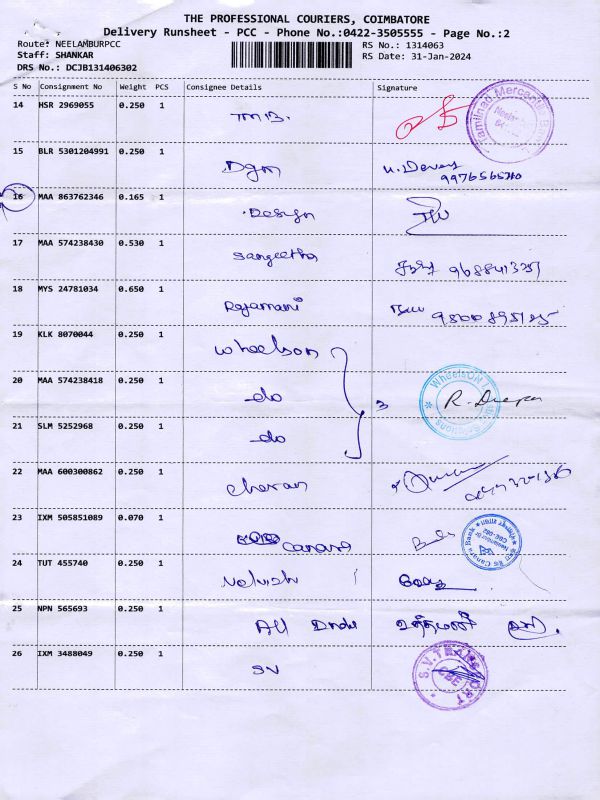 THE PROFESSIONAL COURIERS, COIMBATORE
Delivery Runsheet - PCC - Phone No.:0422-3505555 - Page No.:2
Route: NEELAMBURPCC
RS No.: 1314063
Staff: SHANKAR
RS Date: 31-Jan-2024
DRS No.: DCJB131406302
S No Consignment No Weight PCS Consignee Details Signature
14 HSR 2969055 0.250 1 TMB.
15 BLR 5301204991 0.250 1 Dgm
16 MAA 863762346 0.165 1 Design
17 MAA 574238430 0.530 1 Sangeetha
18 MYS 24781034 0.650 1 Rajamani
19 KLK 8070044 0.250 1 Wheelson
20 MAA 574238418 0.250 1 do
3 R. Deepa
21 SLM 5252968 0.250 1 do
22 MAA 600300862 0.250 1 Cheran
23 IXM 505851089 0.070 1 Canara
24 TUT 455740 0.250 1
25 NPN 565693 0.250 1 All India
26 IXM 3488049 0.250 1 SV
S.V.TRANSPORT
CBE